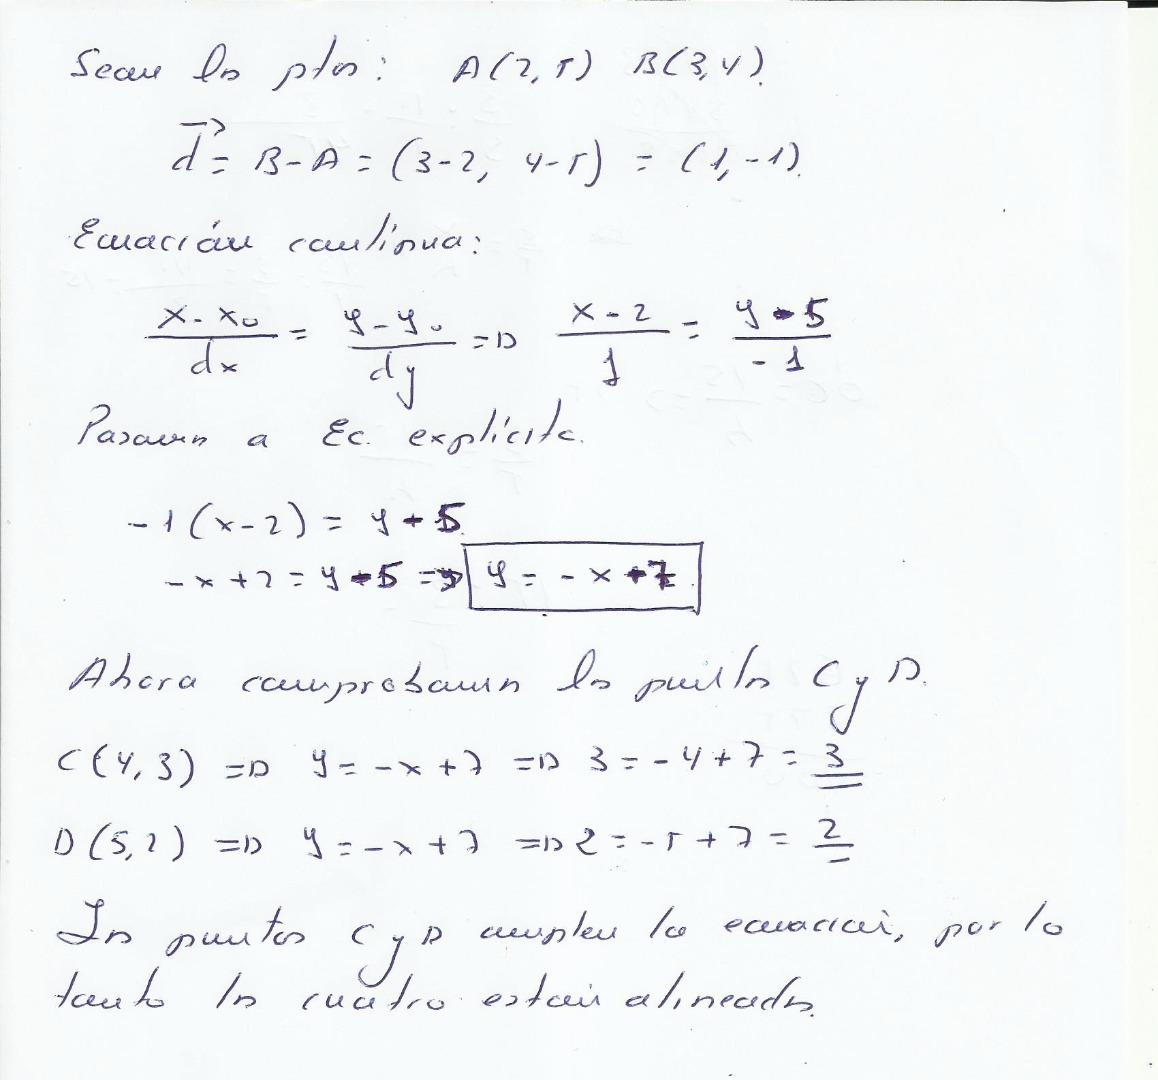 Sean los ptos: A(2,5) B(3,4).
d⃗ = B-A = (3-2, 4-5) = (1,-1).
Ecuación contínua:
x-x₀/dx = y-y₀/dy => x-2/1 = y-5/-1
Pasamos a Ec. explícita.
-1(x-2) = y-5
-x+2 = y-5 => y = -x+7
Ahora comprobamos los puntos C y D.
C(4,3) => y = -x+7 => 3 = -4+7 = 3
D(5,2) => y = -x+7 => 2 = -5+7 = 2
Los puntos C y D cumplen la ecuación, por lo
tanto los cuatro están alineados.